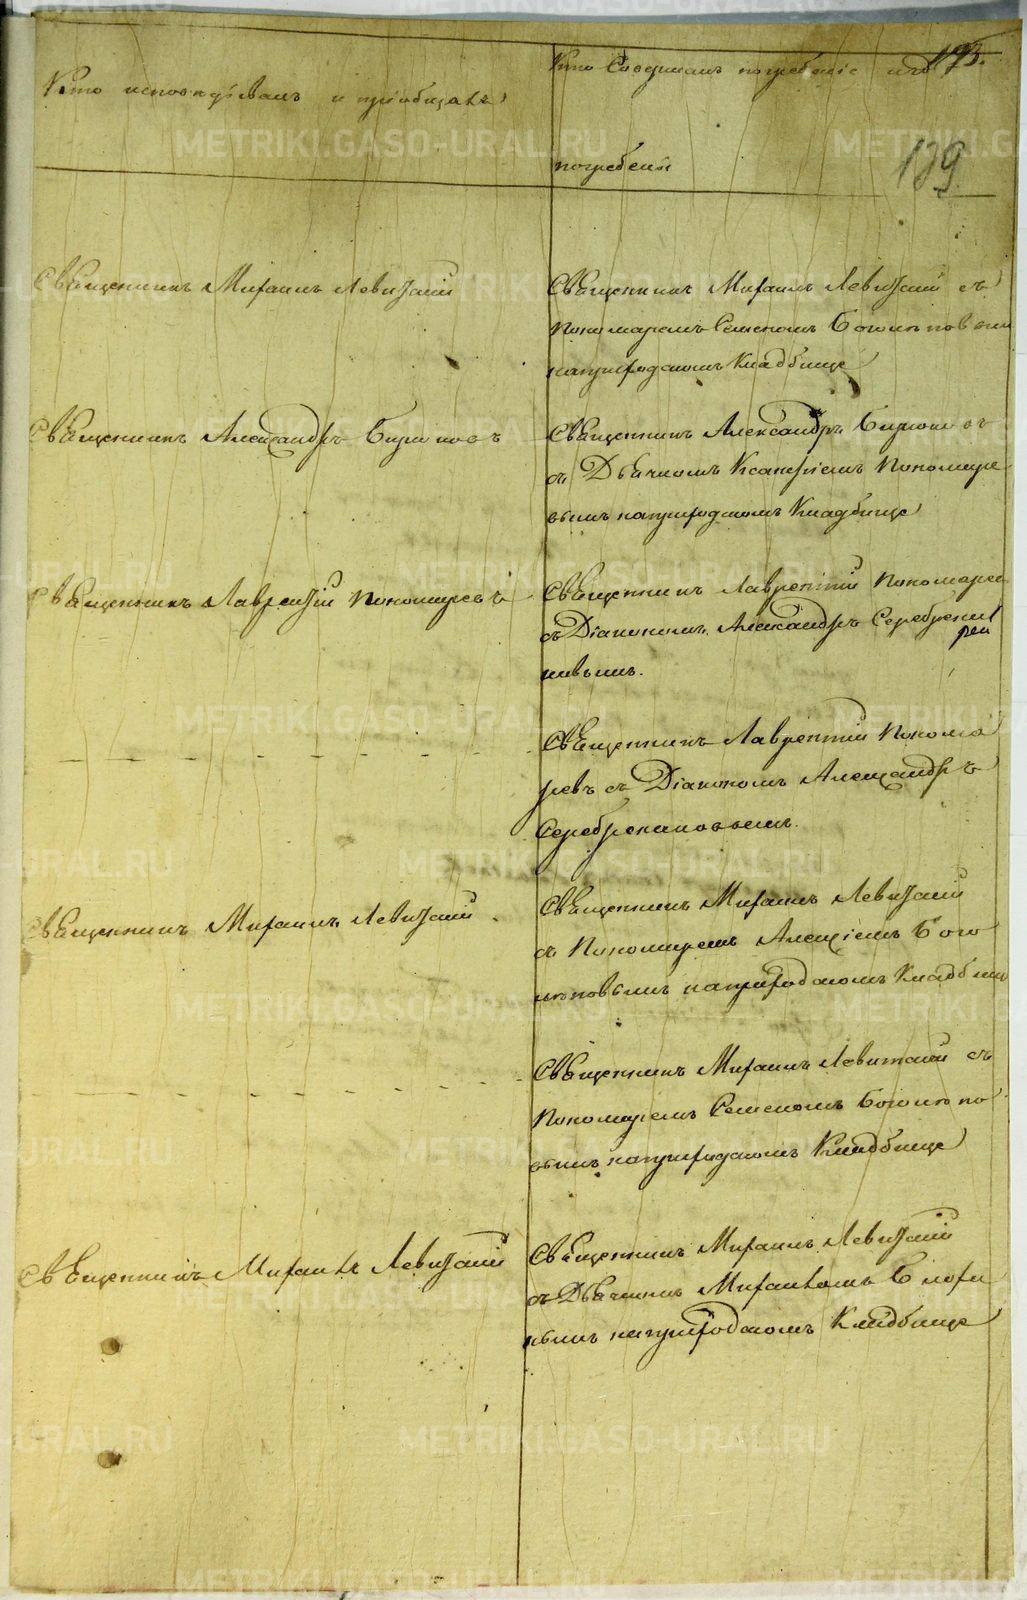 193.
139
Кто исповѣдывалъ и пріобщалъ
Кто Совершалъ погребеніе и гдѣ
погребены
Священникъ Михаилъ Левитскій
Священникъ Михаилъ Левитскій съ
Пономаремъ Семеномъ Боголюповым
наприходскомъ Кладбище
Священникъ Александръ Бирюковъ
Священникъ Александръ Бирюковъ
съ Дьячкомъ Пономаре
вымъ наприходскомъ Кладбище
Священникъ Лаврентій Пономаревъ
Священникъ Лаврентій Пономарев
съ Діакономъ Александръ Серебрени
ковымъ.
Священникъ Лаврентій Понома
ревъ съ Діакономъ Александръ
Серебрениковымъ.
Священникъ Михаилъ Левитскій
Священникъ Михаилъ Левитскій
съ Пономаремъ Алексіемъ Бого
люповымъ наприходскомъ Кладбище
Священникъ Михаилъ Левитскій съ
Пономаремъ Семеномъ Боголюпо
вымъ наприходскомъ Кладбище
Священникъ Михаилъ Левитскій
Священникъ Михаилъ Левитскій
съ Дьячкомъ Михаиломъ
наприходскомъ Кладбище
METRIKI.GASO-URAL.RU